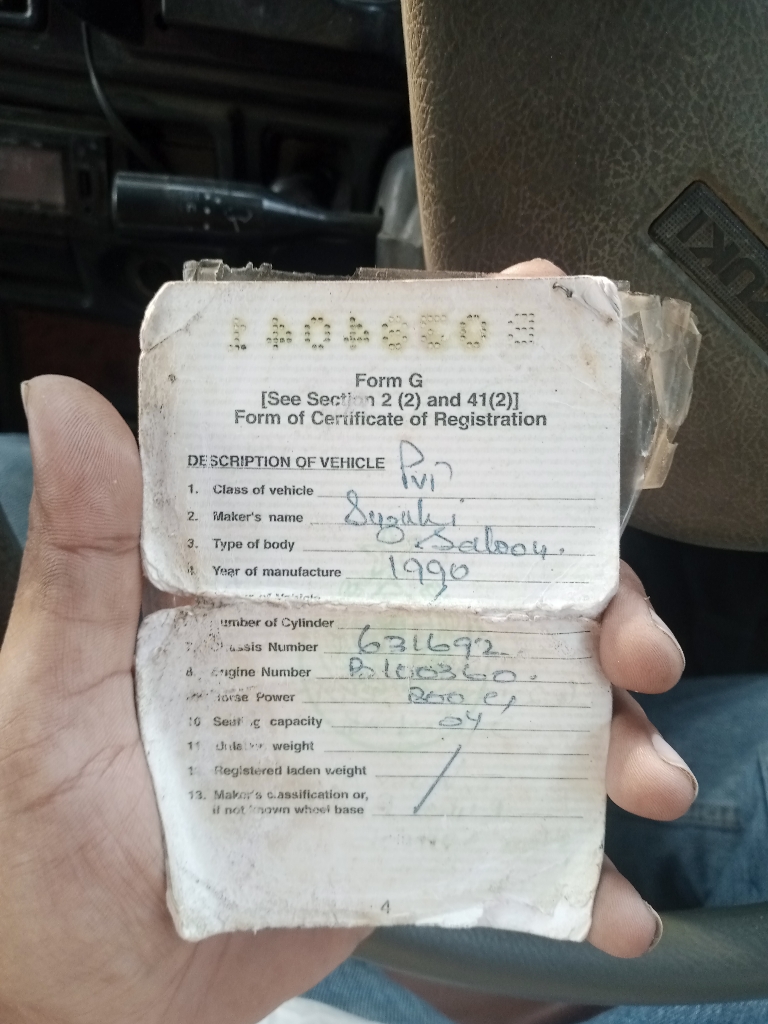 UKI
Form G
[See Section 2 (2) and 41(2)]
Form of Certificate of Registration
DESCRIPTION OF VEHICLE
1. Class of vehicle Pvt
2. Maker's name Suzuki
3. Type of body Saloon.
4 Year of manufacture 1990
Number of Cylinder
7. Chassis Number 631692
8. Engine Number
Horse Power 800 cc
10 Seating capacity 04
11 Unladen weight
Registered laden weight
13. Maker's classification or,
if not known wheel base
4